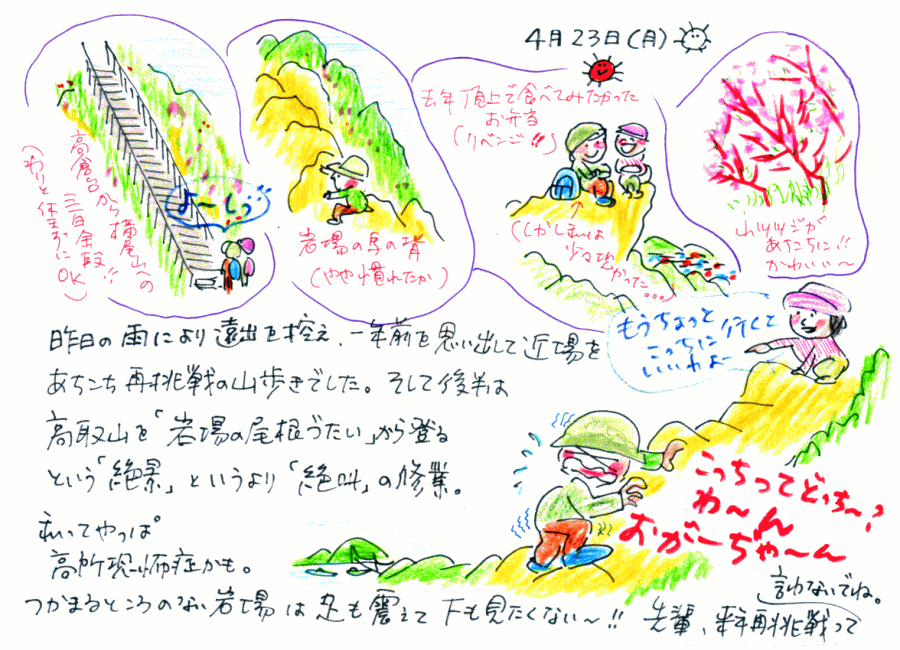 4月23日(月)
高倉台から栂尾山への
三百余段!!
(わりと休まずにOK)
よーしっ
岩場の馬の背
(やや慣れたかい)
去年頂上で食べてみたかった
お弁当
(リベンジ!!)
(しかし私は
少々恐
かった…
山ツツジが
あちこちに!!
かわいい〜
もうちょっと
こっちに行くと
いいわよー
昨日の雨により遠出を控え、一年前を思い出して近場を
あちこち再挑戦の山歩きでした。そして後半は
高取山を「岩場の尾根づたい」から登る
という「絶景」というより「絶叫」の修業。
私ってやっぱ
高所恐怖症かも。
つかまるところのない岩場は足も震えて下も見たくない〜!!
こっちってどっち〜?
わ〜ん
おがーちゃ〜ん
先輩、来年再挑戦って
言わないでね。